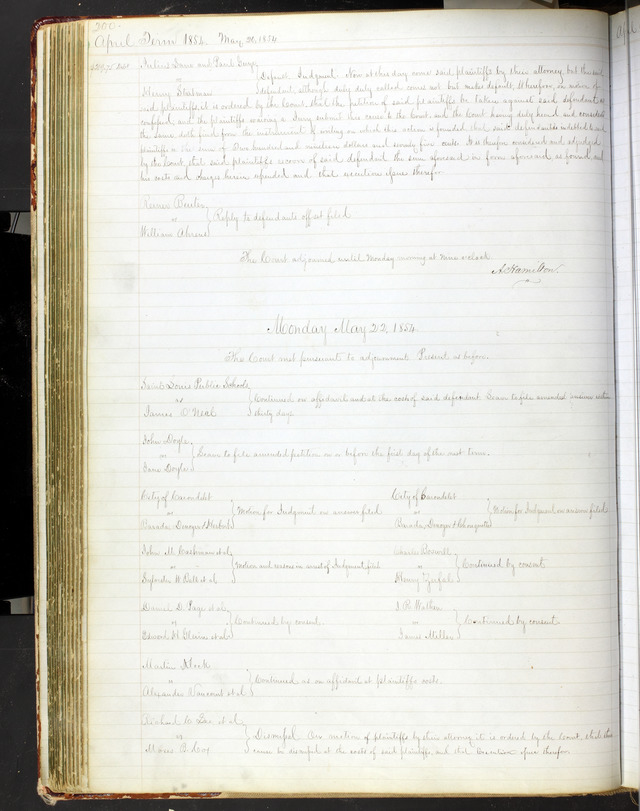 200
April Term 1854. May 20, 1854
Default Judgment. Now at this day come said plaintiffs by their attorney, but the said
Henry
defendant, although duly called comes not but makes default, Therefore, on motion of
said plaintiffs it is ordered by the Court that the petition of said plaintiffs be taken against said defendant as
confessed, and the plaintiffs waiving a Jury submit this cause to the Court and the Court having duly heard and considered
the same doth find from the instrument of writing on which this action is founded that said defendant is indebted to said
plaintiffs in the sum of Two hundred and nineteen dollars and seventy five cents. It is therefore considered and adjudged
by the Court that said plaintiffs recover of said defendant the sum aforesaid in form aforesaid as found, and
his costs and charges herein expended and that execution issue therefor.
vs
Reply to defendants offset filed
William Ahrens
The Court adjourned until Monday morning at nine o'clock
A. Hamilton.
Monday May 22, 1854.
The Court met pursuant to adjournment. Present as before.
Saint Louis Public Schools
vs
Continued on affidavit and at the costs of said defendant. Leave to file amended answer within
James O'Neil
thirty days
John Doyle
vs
Leave to file amended petition on or before the first day of the next term.
Jane Doyle
City of Carondelet
vs
Motion for Judgment on answer filed
City of Carondelet
vs
Motion for Judgment on answer filed
John M.
Motion and reasons in arrest of Judgment filed
Sylvester
Charles
vs
Continued by consent
Henry
Daniel D. Page et al
vs
Continued by consent
Edward
vs
Continued by consent
James Miller
Martin
vs
Continued as on affidavit at plaintiffs costs.
Alexander
Richard
vs
Dismissed. On motion of plaintiffs by their attorney it is ordered by the Court, that this
cause be dismissed at the costs of said plaintiffs, and that Execution issue therefor.